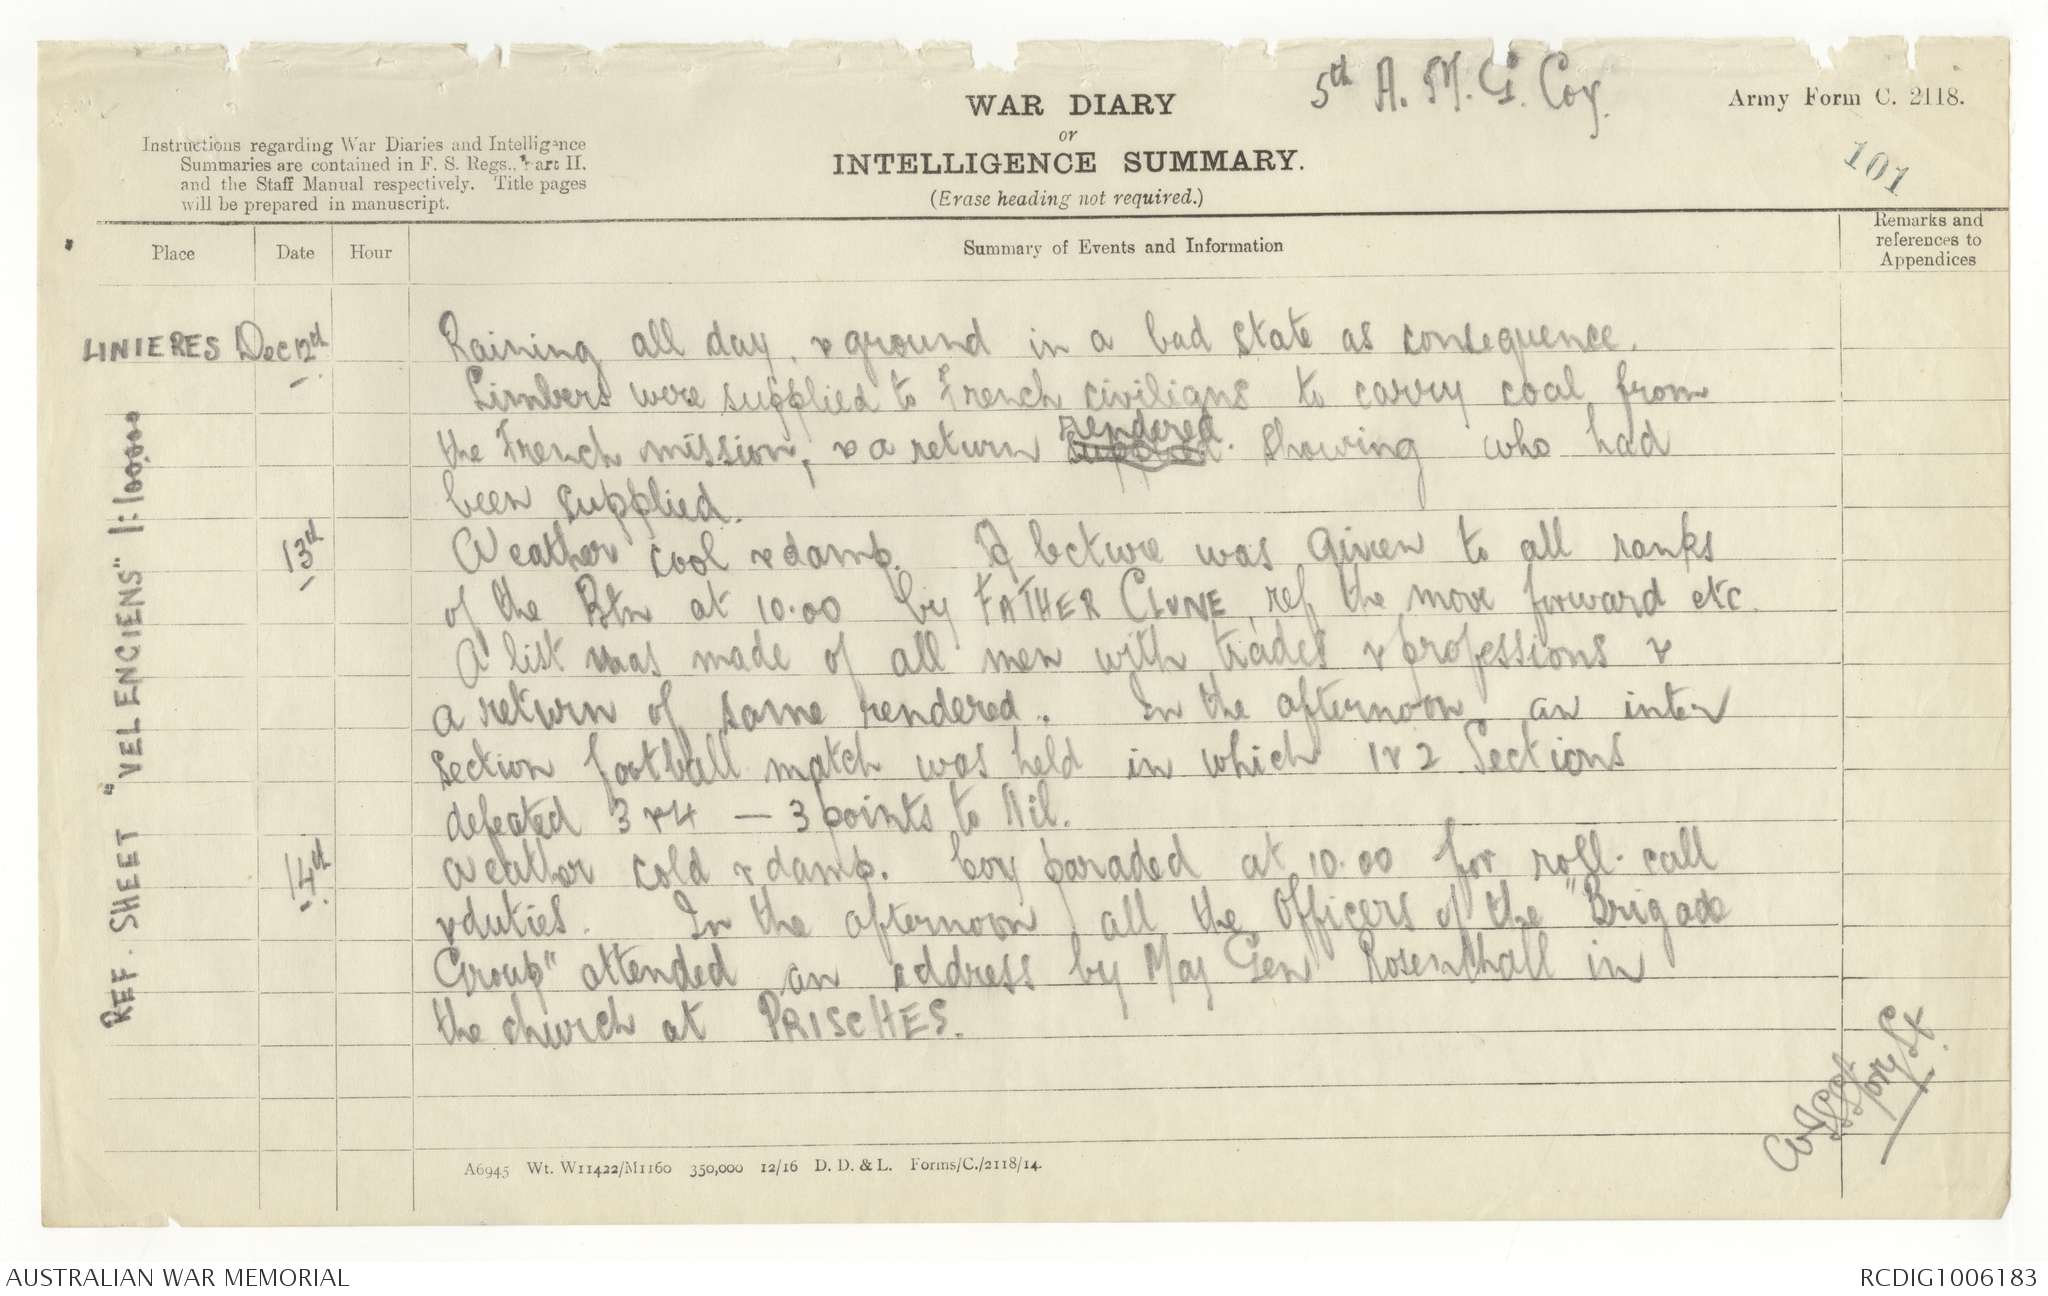 5th A. M. G. Coy.
WAR DIARY
or
INTELLIGENCE SUMMARY.
(Erase heading not required.)
Army Form C. 2118.
101
Instructions regarding War Diaries and Intelligence
Summaries are contained in F. S. Regs., Part II.
and the Staff Manual respectively. Title pages
will be prepared in manuscript.
Place
Date
Hour
Summary of Events and Information
Remarks and
references to
Appendices
LINIERES Dec 12th
Raining all day, & ground in a bad state as consequence.
Limbers were supplied to French civilians to carry coal from
the French mission, & a return rendered. showing who had
been supplied.
13th
Weather cool & damp. A lecture was given to all ranks
of the Btn at 10.00 by FATHER CLUNE, ref the move forward etc.
A list was made of all men with trades & professions &
a return of same rendered. In the afternoon an inter
section football match was held in which 1 & 2 Sections
defeated 3 & 4 — 3 points to Nil.
14th
Weather cold & damp. Coy paraded at 10.00 for roll-call
& duties. In the afternoon all the Officers of the "Brigade
Group" attended an address by Maj Gen Rosenthall in
the church at PRISCHES.
REF. SHEET "VELENCIENS" 1:100,000
A6945 Wt. W11422/M1160 350,000 12/16 D. D. & L. Forms/C./2118/14.
AUSTRALIAN WAR MEMORIAL
RCDIG1006183